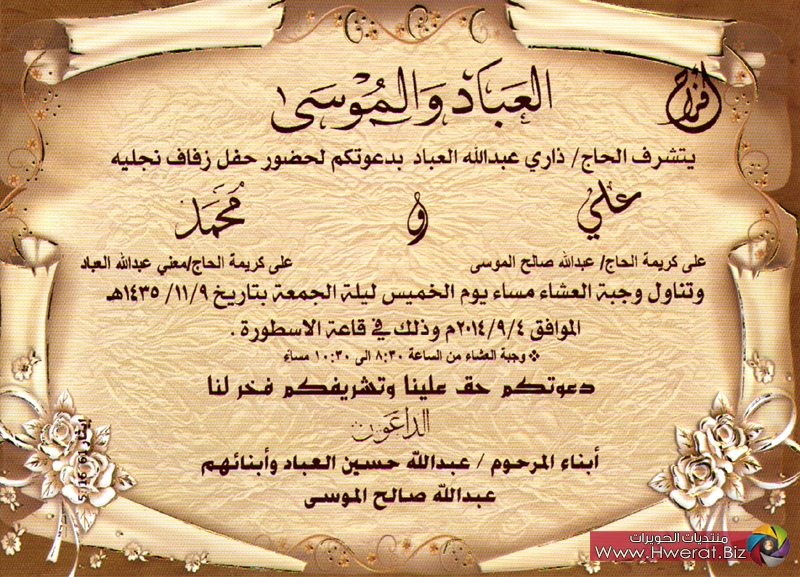 أفراح
العباد والموسى
يتشرف الحاج/ ذاري عبدالله العباد بدعوتكم لحضور حفل زفاف نجليه
علي و محمد
على كريمة الحاج/ عبدالله صالح الموسى
على كريمة الحاج/معني عبدالله العباد
وتناول وجبة العشاء مساء يوم الخميس ليلة الجمعة بتاريخ ١٤٣٥/١١/٩هـ
الموافق ٢٠١٤/٩/٤م وذلك في قاعة الاسطورة .
❖ وجبة العشاء من الساعة ٨:٣٠ الى ١٠:٣٠ مساءً
دعوتكم حق علينا وتشريفكم فخر لنا
الداعون
أبناء المرحوم / عبدالله حسين العباد وأبنائهم
عبدالله صالح الموسى
منتديات الحويرات
Www.Hwerat.Biz